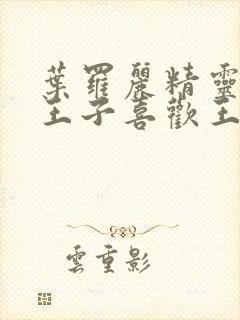 葉羅麗精靈
王子喜歡王
雲重影